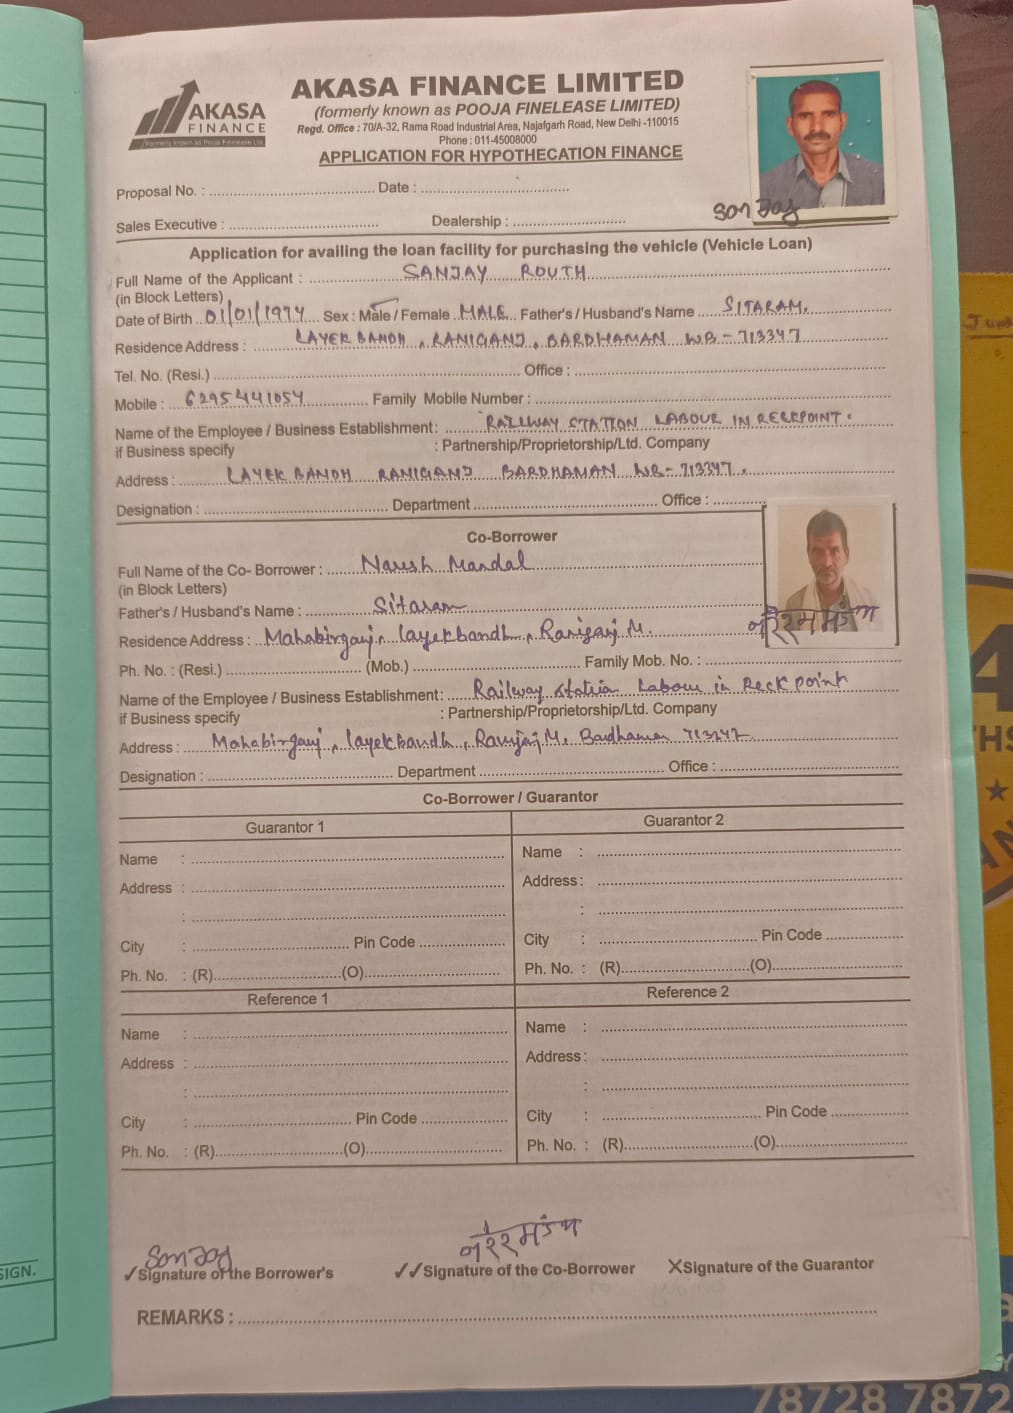 AKASA
FINANCE
AKASA FINANCE LIMITED
(formerly known as POOJA FINELEASE LIMITED)
Regd. Office : 70/A-32, Rama Road Industrial Area, Najafgarh Road, New Delhi -110015
Phone : 011-45008000
APPLICATION FOR HYPOTHECATION FINANCE
Proposal No. : Date :
Son Jay
Sales Executive : Dealership :
Application for availing the loan facility for purchasing the vehicle (Vehicle Loan)
Full Name of the Applicant : SANJAY ROUTH
(in Block Letters)
Date of Birth 01/01/1974 Sex : Male / Female MALE Father's / Husband's Name SITARAM.
Residence Address : LAYEK BANDH, RANIGANJ, BARDHAMAN WB-713347
Tel. No. (Resi.) Office :
Mobile : 6295441054 Family Mobile Number :
Name of the Employee / Business Establishment: RAILWAY STATION LABOUR IN RECKPOINT.
if Business specify : Partnership/Proprietorship/Ltd. Company
Address : LAYEK BANDH RANIGANJ BARDHAMAN WB-713347.
Designation : Department Office :
Co-Borrower
Full Name of the Co- Borrower : Naresh Mandal
(in Block Letters)
Father's / Husband's Name : Sitaram
Residence Address : Mahabirganj, layekbandh, Raniganj M.
Ph. No. : (Resi.) (Mob.) Family Mob. No. :
Name of the Employee / Business Establishment: Railway station Labour in Reck point
if Business specify : Partnership/Proprietorship/Ltd. Company
Address : Mahabirganj, layekbandh, Raniganj M. Bardhaman 713347
Designation : Department Office :
Co-Borrower / Guarantor
Guarantor 1 Guarantor 2
Name : Name :
Address : Address :
: :
City : Pin Code City : Pin Code
Ph. No. : (R) (O) Ph. No. : (R) (O)
Reference 1 Reference 2
Name : Name :
Address : Address :
: :
City : Pin Code City : Pin Code
Ph. No. : (R) (O) Ph. No. : (R) (O)
Son Jay
✓Signature of the Borrower's ✓✓Signature of the Co-Borrower XSignature of the Guarantor
REMARKS :
SIGN.
78728 7872